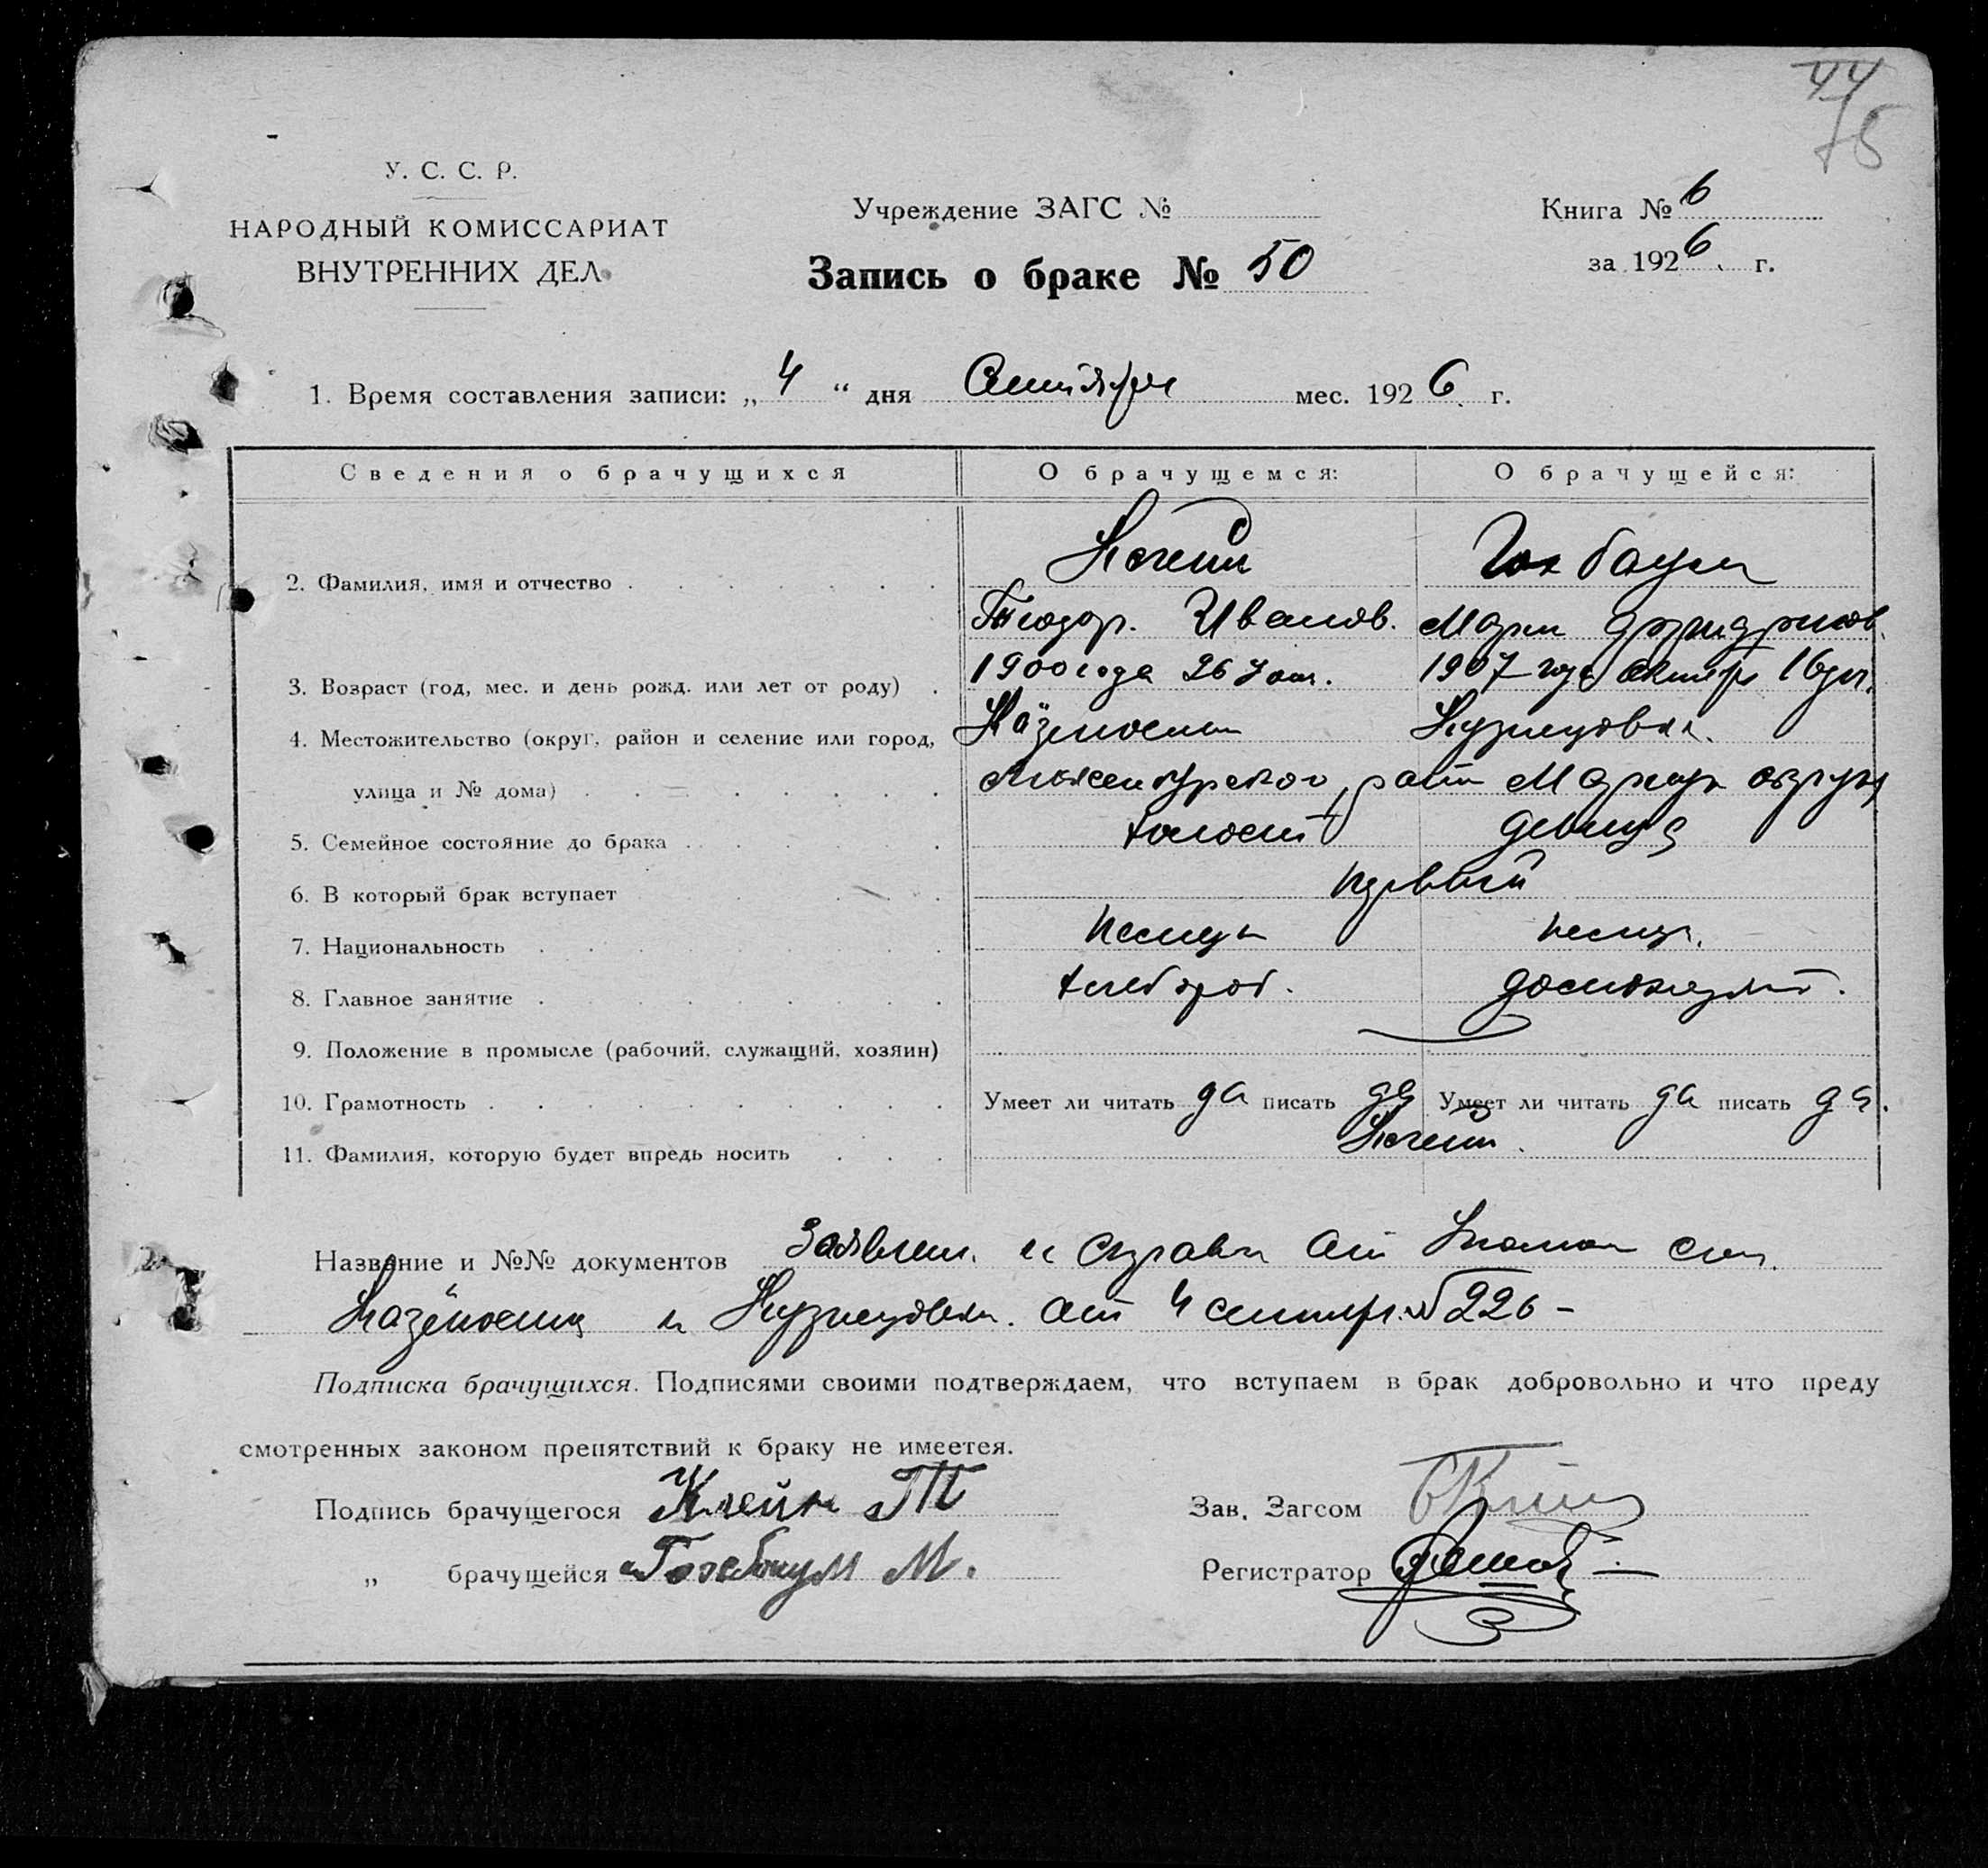 44
75
У. С. С. Р.
НАРОДНЫЙ КОМИССАРИАТ
ВНУТРЕННИХ ДЕЛ
Учреждение ЗАГС №
Запись о браке № 50
Книга № 6
за 1926 г.
1. Время составления записи: „ 4 “ дня Сентября мес. 1926 г.
Сведения о брачущихся О брачущемся: О брачущейся:
2. Фамилия, имя и отчество Клейн
Теодор. Иванов. Мария Фридрихов.
3. Возраст (год, мес. и день рожд. или лет от роду) 1900 года 26 лет. 1907 года октябр 16 дн.
4. Местожительство (округ, район и селение или город, Кузнецовка.
улица и № дома) Люксембургского район Мариуп округа
5. Семейное состояние до брака холост девица
6. В который брак вступает первый
7. Национальность немец немец.
8. Главное занятие хлебороб. домохозяйст.
9. Положение в промысле (рабочий, служащий, хозяин)
10. Грамотность Умеет ли читать да писать да Умеет ли читать да писать да.
11. Фамилия, которую будет впредь носить Клейн.
Название и №№ документов Заявлен. и справки от
и Кузнецовки. от 4 сентябр. № 226 –
Подписка брачущихся. Подписями своими подтверждаем, что вступаем в брак добровольно и что преду
смотренных законом препятствий к браку не имеетея.
Подпись брачущегося Клейн Т Зав. Загсом
„ брачущейся М. Регистратор